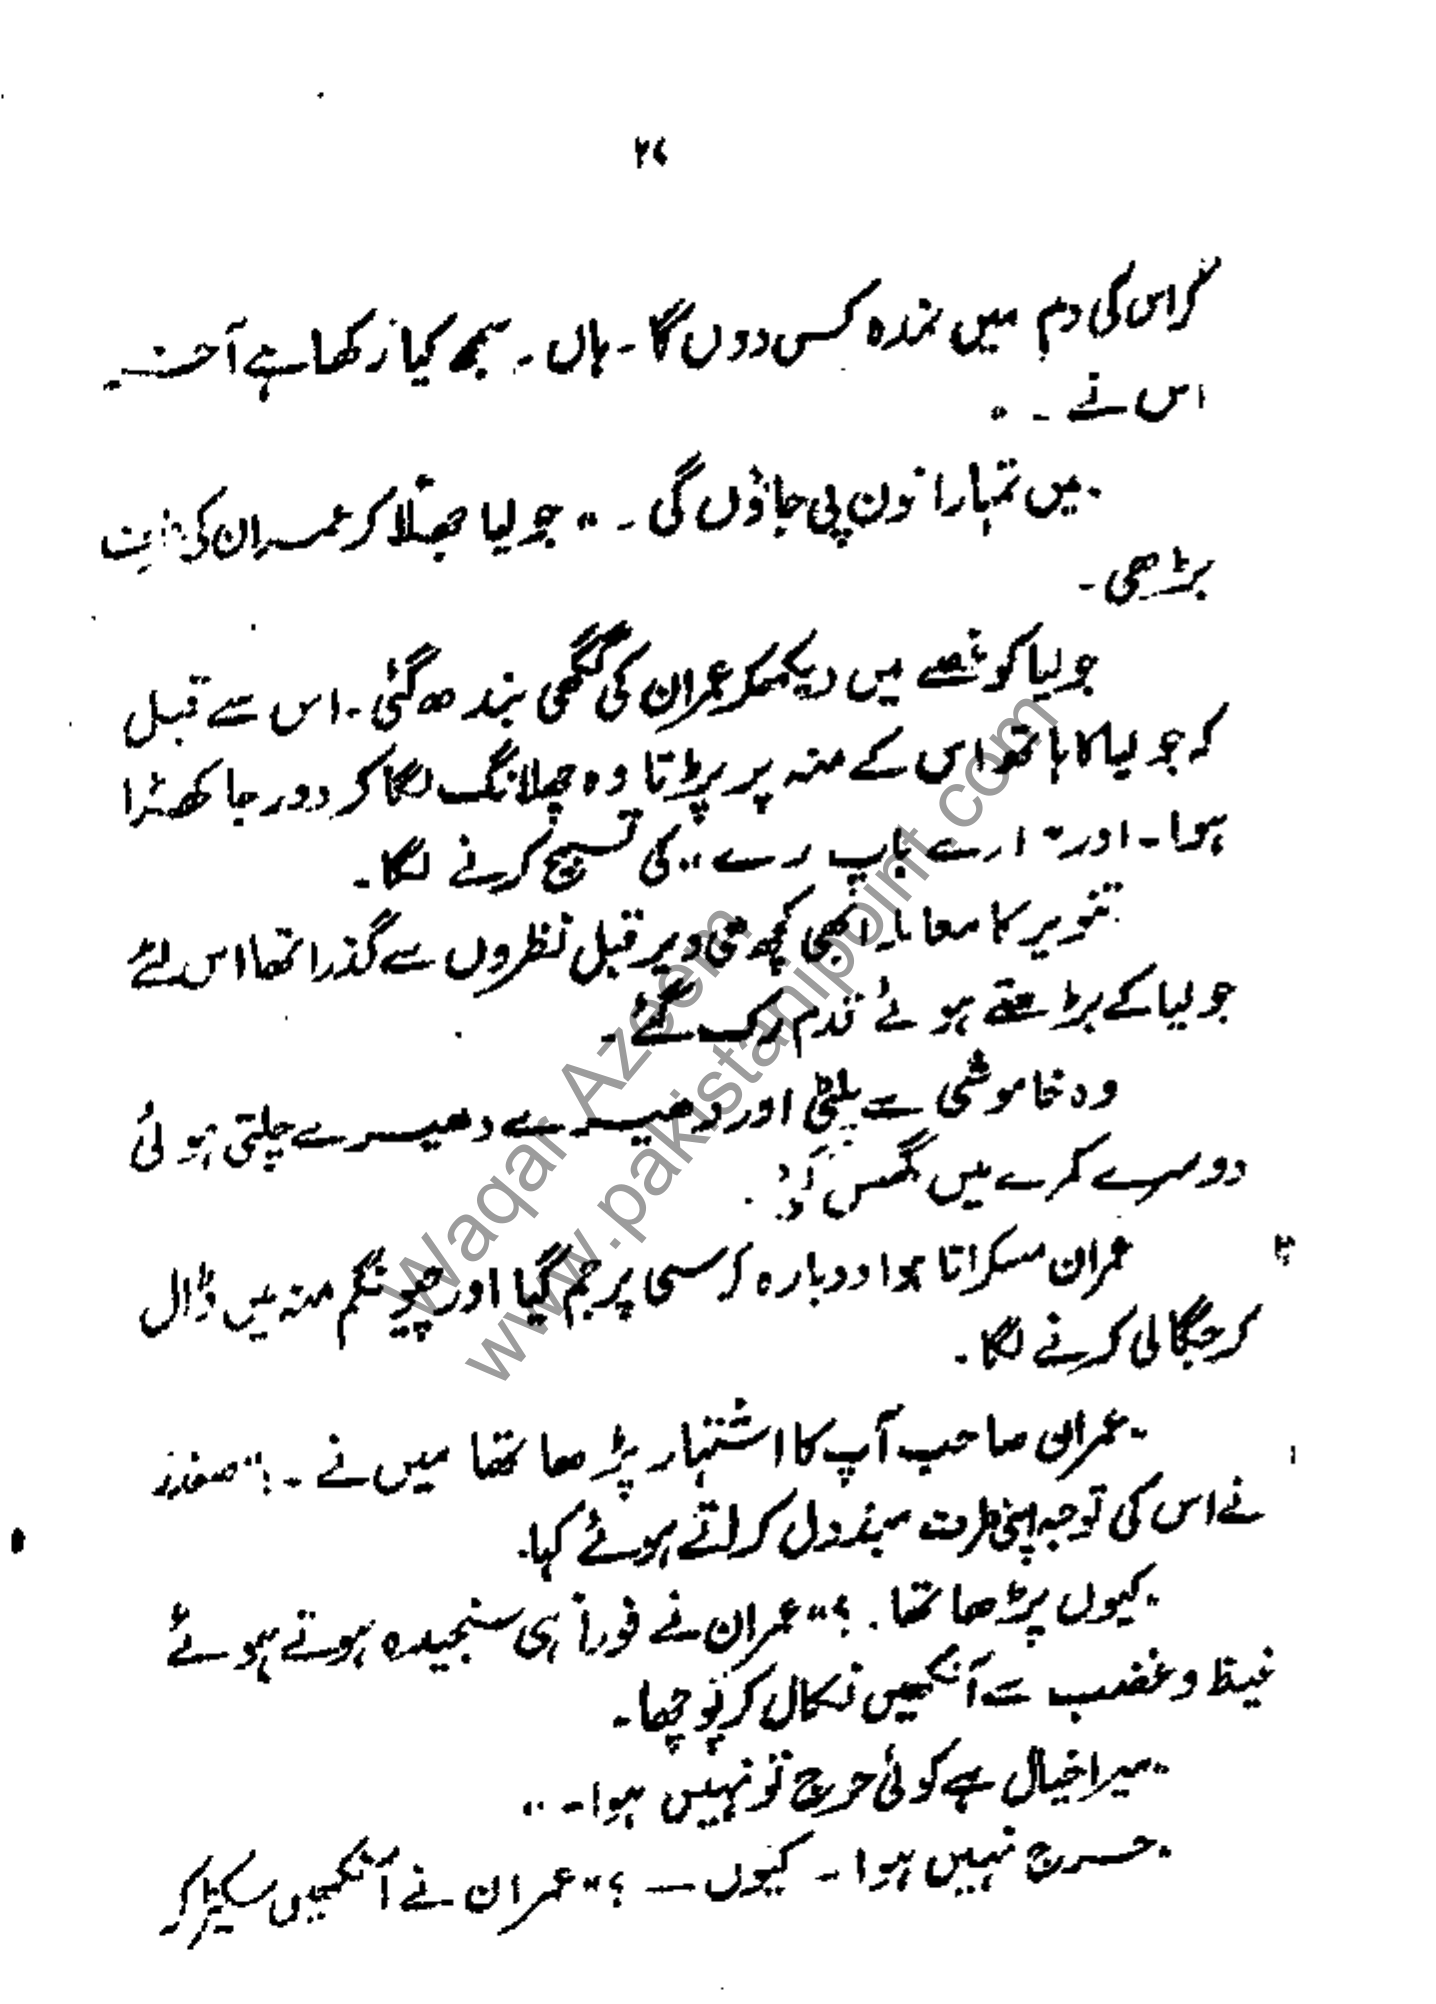 ۲۷
کر اس کی دم میں نمدہ کس دوں گا۔ ہاں۔ سمجھ کیا رکھا ہے آخر
اس نے ۔ "
"میں تمہارا خون پی جاؤں گی ۔" جولیا جھلّا کر عمران کی
بڑھی۔
جولیا کو غصے میں دیکھکر عمران کی گھگھی بندھ گئی۔ اس سے قبل
کہ جولیا کا ہاتھ اس کے منہ پر پڑتا وہ چھلانگ لگا کر دور جا کھڑا
ہوا۔ اور "ارے باپ رے" کی تسبیح کرنے لگا۔
تنویر کا معاملہ ابھی کچھ ہی دیر قبل نظروں سے گذرا تھا اس لئے
جولیا کے بڑھتے ہوئے قدم رک گئے۔
وہ خاموشی سے پلٹی اور دھیرے دھیرے چلتی ہوئی
دوسرے کمرے میں گھس گئی۔
عمران مسکراتا ہوا دوبارہ کرسی پر جم گیا اور چیونگم منہ میں ڈال
کر جگالی کرنے لگا۔
"عمران صاحب آپ کا اشتہار پڑھا تھا میں نے ۔!" صفدر
نے اس کی توجہ اپنی طرف مبذول کراتے ہوئے کہا۔
"کیوں پڑھا تھا۔ ؟" عمران نے فوراً ہی سنجیدہ ہوتے ہوئے
غیظ و غضب سے آنکھیں نکال کر پوچھا۔
"میرا خیال ہے کوئی حرج تو نہیں ہوا۔"
"حرج نہیں ہوا۔ کیوں — ؟" عمران نے آنکھیں سکیڑ کر
Waqar Azeem
www.pakistanipoint.com